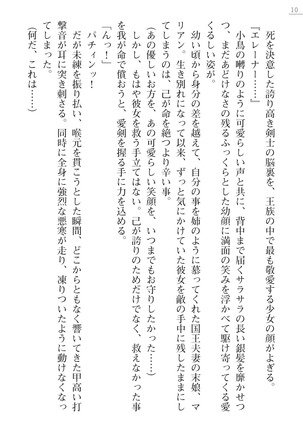 10
死を決意した誇り高き剣士の脳裏を、王族の中でも最も敬愛する少女の顔がよぎる。
『エレーナー……』
小鳥の囀りのように可愛らしい声と共に、背中まで届くサラサラの長い銀髪を靡かせつ
つ、まだあどけなさの残るふっくらとした幼顔に満面の笑みを浮かべて駆け寄ってくる愛
くるしい姿が。
幼い頃から身分の差を越えて、自分の事を姉のように慕ってくれた国王夫妻の末娘、マ
リアン。生き別れになって以来、ずっと気にかけていた彼女を敵の手中に残したままにし
てしまうのは、己が命を絶つより辛い事。
（あの優しいお方を、あの可愛らしい笑顔を、いつまでもお守りしたかった……）
しかし、もはや彼女を救う手立てはない。己が誇りのためだけでなく、救えなかった事
を我が命で償おうと、愛剣を握る手に力を込める。
パチィンッ！
だが未練を振り払い、喉元を貫こうとした瞬間、どこからともなく響いてきた甲高い打
撃音が耳に突き刺さる。同時に全身に強烈な悪寒が走り、凍りついたように動けなくなっ
てしまった。
（何だ、これは……）